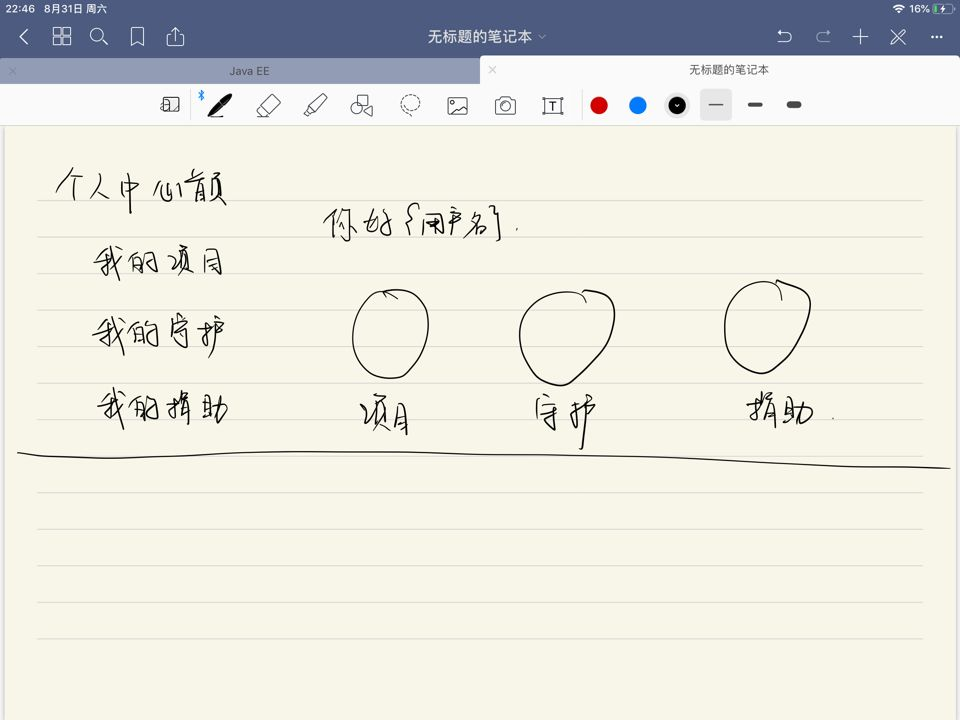 22:46 8月31日 周六 16%
无标题的笔记本
Java EE
无标题的笔记本
T
个人中心首页
你好{用户名}.
我的项目
我的守护
我的捐助
项目
守护
捐助.